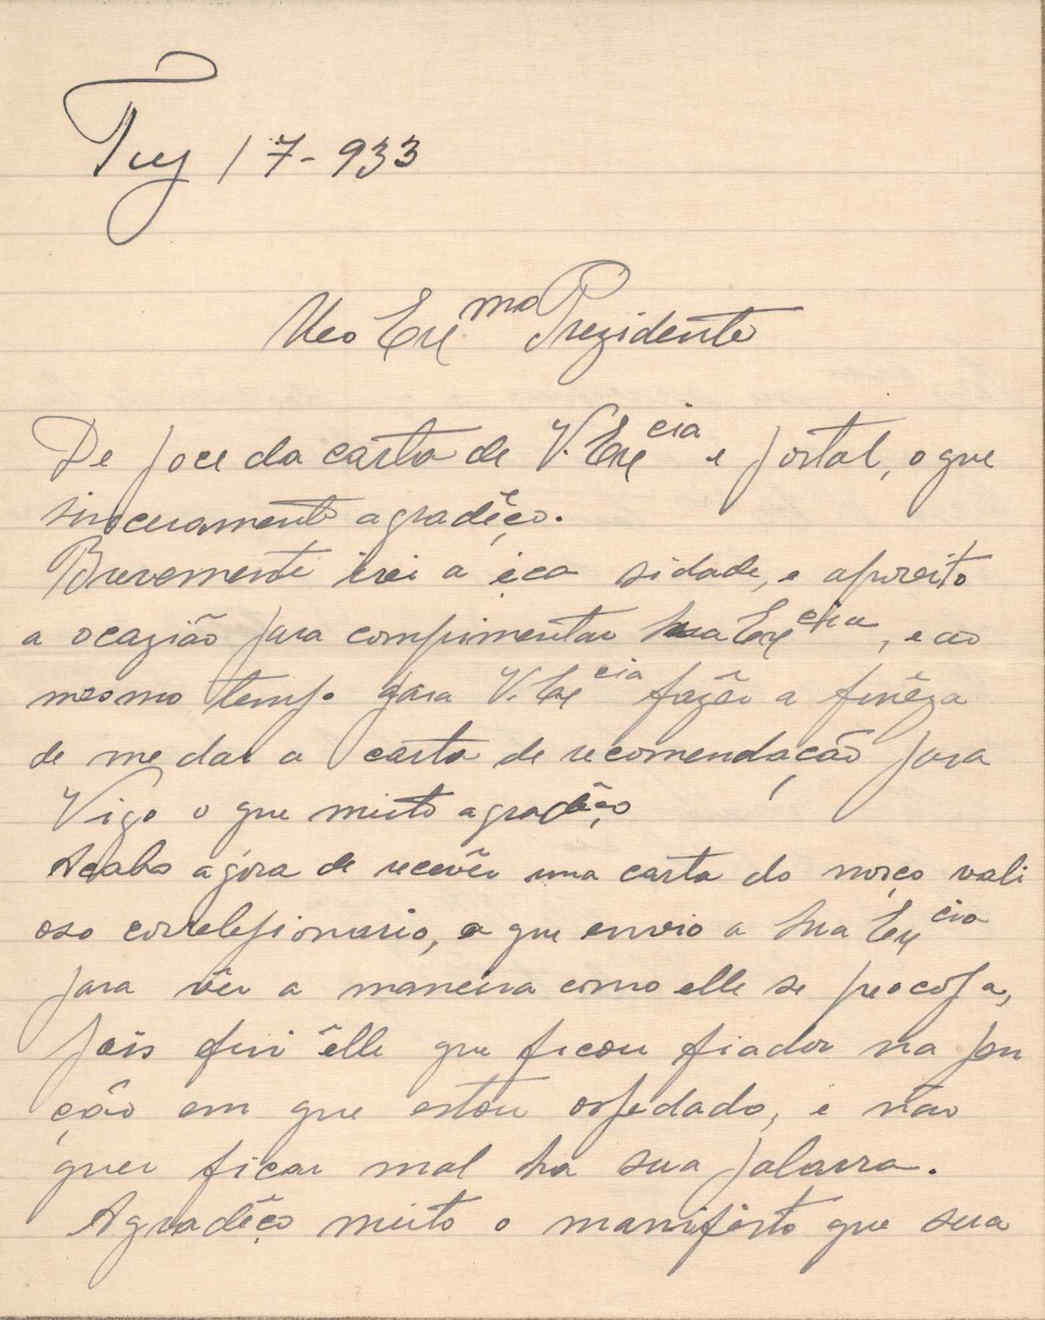 Tuy 17-933
Meo Ex.mo Prezidente
De poce da carta de V. Excia e postal, o que
sinceramente agradêço.
Brevemente irei a éça sidade, e aproveito
a ocazião para comprimentar Sua Excia, e ao
mesmo tempo para V. Excia fazêr a finêza
de me dar a carta de recomendação para
Vigo o que muito agradêço
Acabo agóra de recevêr uma carta do noço vali
oso correlegionario, a que envio a Sua Excia
para vêr a maneira como elle se preocopa,
pois foi êlle que ficou fiador na pen
ção em que estou ospedado, e não
quer ficar mal na sua palavra.
Agradêço muito o manifésto que sua